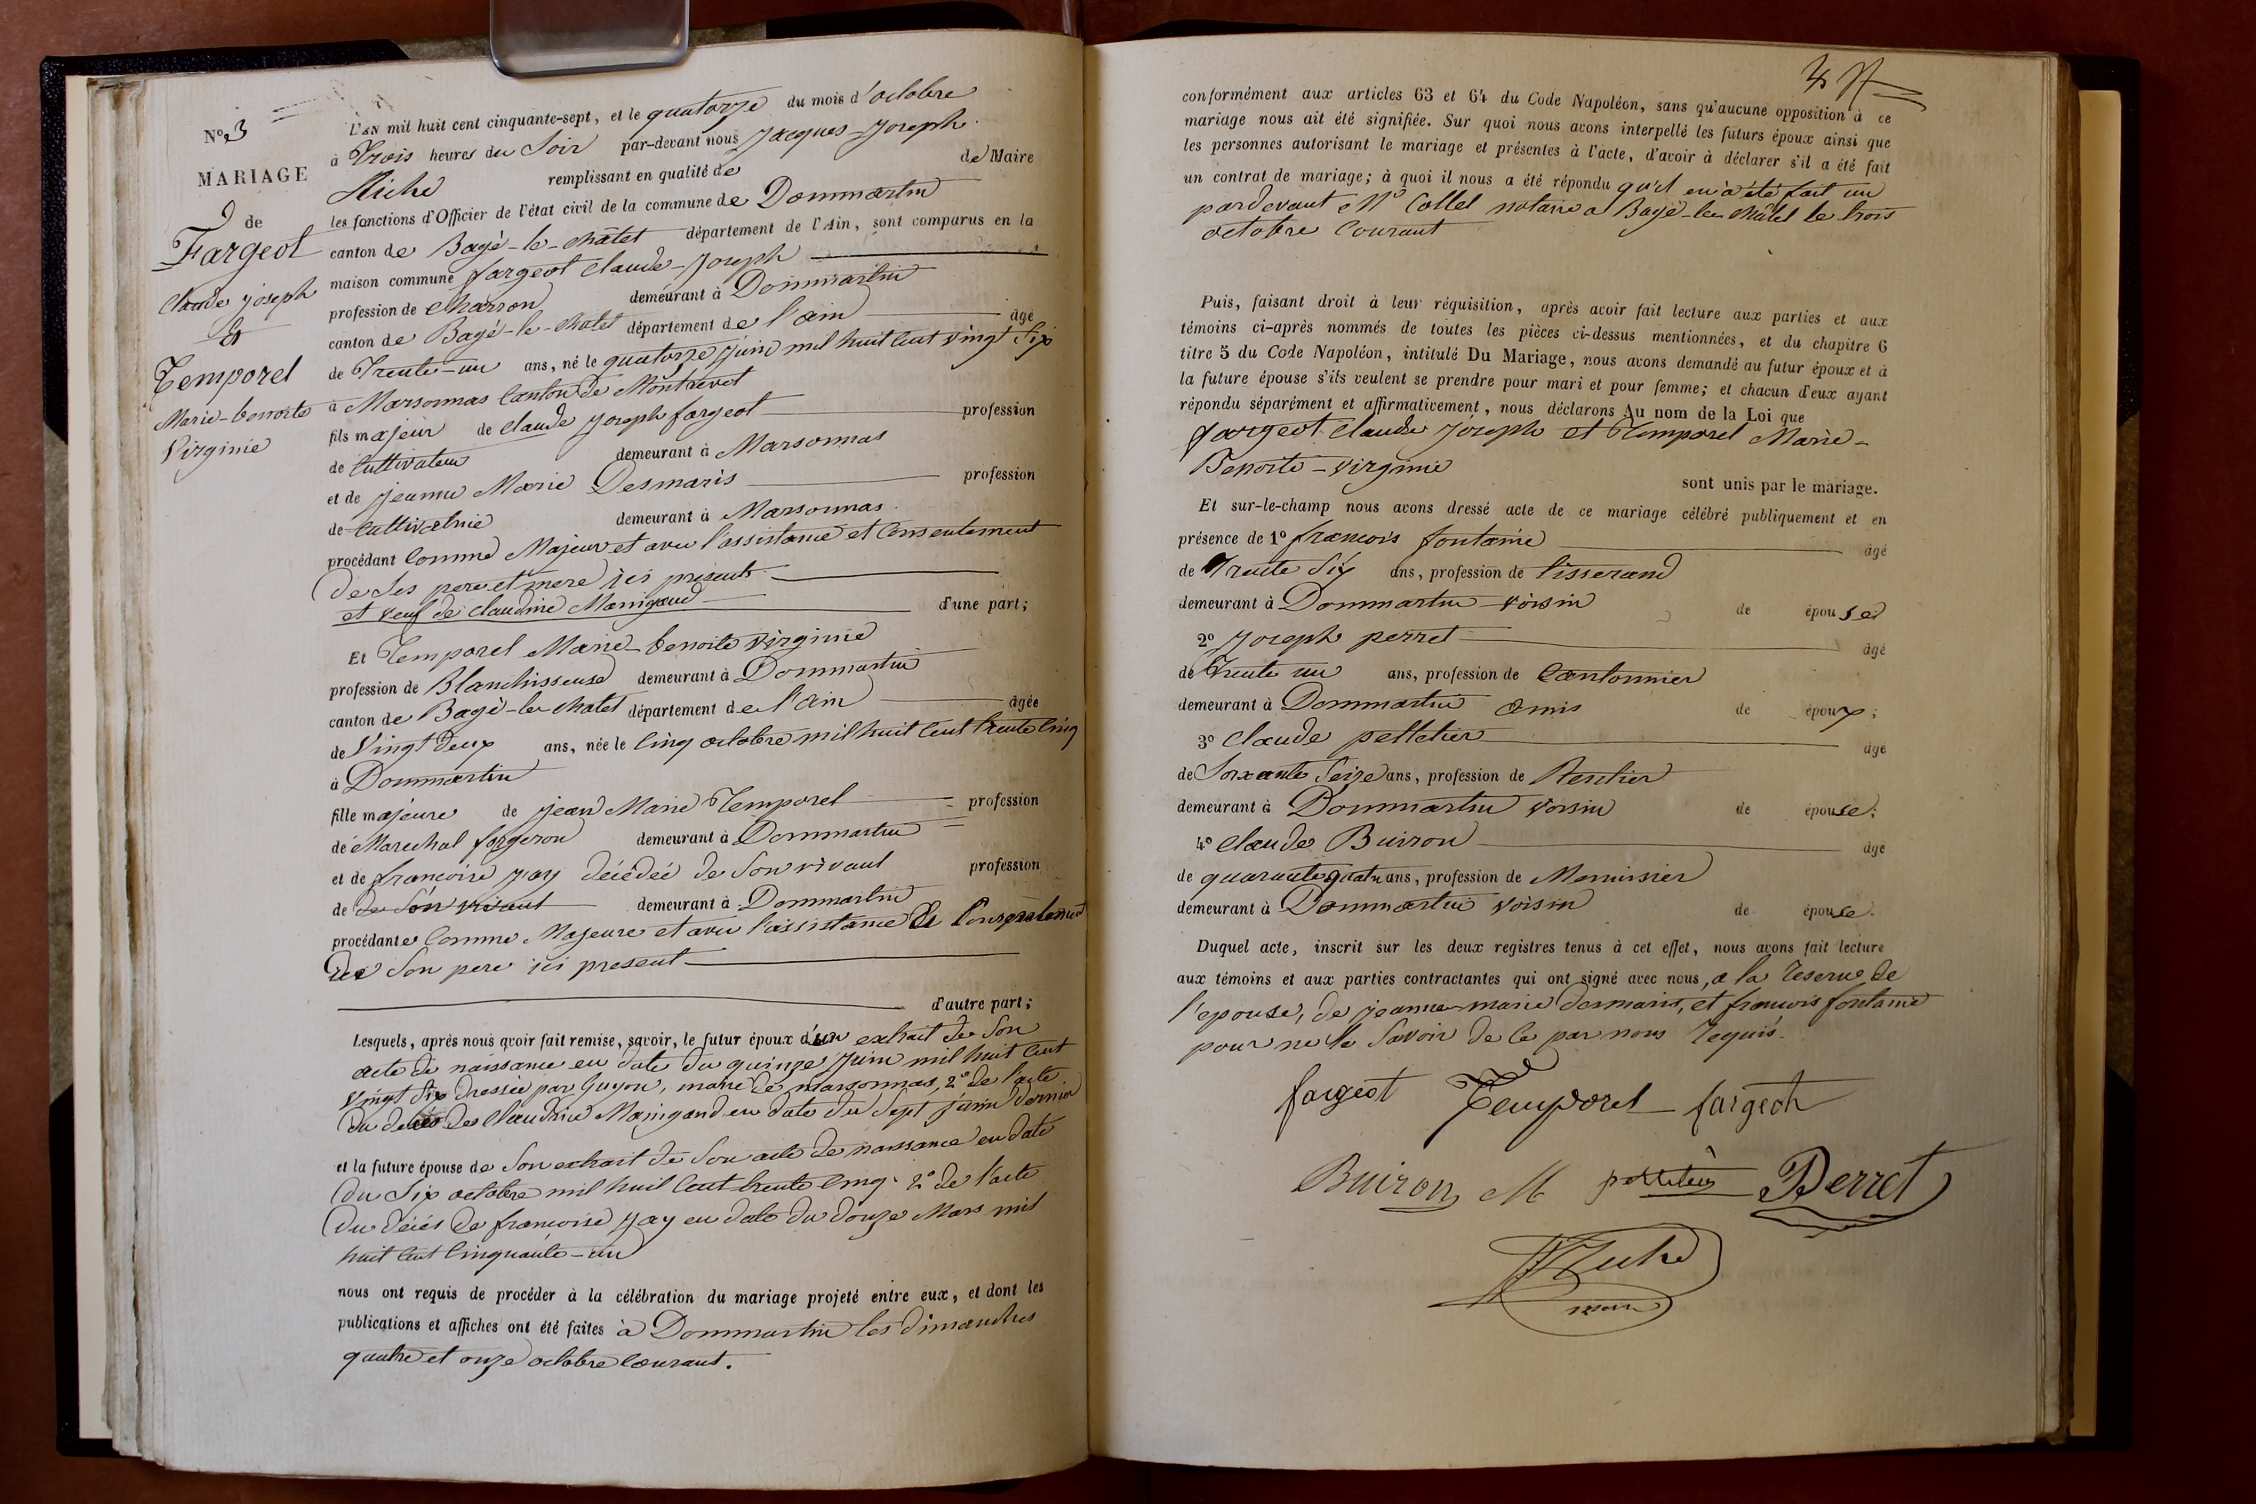 N° 3
MARIAGE
de
Fargeot
Claude joseph
&
Temporel
Marie-benoite
Virginie
L'AN mil huit cent cinquante-sept, et le quatorze du mois d'octobre
à trois heures du Soir par-devant nous Jacques-Joseph
remplissant en qualité de de Maire
les fonctions d'Officier de l'état civil de la commune de Dommartin
canton de Bagé-le-châtel département de l'Ain, sont comparus en la
maison commune fargeot Claude-Joseph
profession de charron demeurant à Dommartin
canton de Bagé-le-chatel département de l'ain âgé
de Trente-un ans, né le quatorze juin mil huit cent vingt Six
à Marsonnas Canton de Montrevel
fils majeur de claude joseph fargeot profession
de Cultivateur demeurant à Marsonnas
et de jeanne Marie Desmaris profession
de Cultivatrice demeurant à Marsonnas
procédant comme Majeur et avec l'assistance et consentement
de ses pere et mere ici presents
et veuf de claudine Manigand d'une part;
Et Temporel Marie-benoite virginie
profession de Blanchisseuse demeurant à Dommartin
canton de Bagé-le-chatel département de l'ain âgée
de Vingt deux ans, née le cinq octobre mil huit cent trente cinq
à Dommartin
fille majeure de jean Marie Temporel profession
de Marechal forgeron demeurant à Dommartin
et de francoise jay décédée de Son vivant profession
de de Son vivant demeurant à Dommartin
procédante comme Majeure et avec l'assistance & Consentement
de Son pere ici present
d'autre part;
Lesquels, après nous avoir fait remise, savoir, le futur époux d'un extrait de Son
acte de naissance en date du quinze juin mil huit cent
vingt Six dressée par Guyon, maire de marsonnas, 2° de l'acte
du décès de Claudine Manigand en date du Sept juin dernier
et la future épouse de Son extrait de Son acte de naissance en date
du Six octobre mil huit cent trente cinq. 2° de l'acte
du décés de francoise jay en date du douze Mars mil
huit cent Cinquante-un
nous ont requis de procéder à la célébration du mariage projeté entre eux, et dont les
publications et affiches ont été faites à Dommartin les dimanches
quatre et onze octobre courant.
conformément aux articles 63 et 64 du Code Napoléon, sans qu'aucune opposition à ce
mariage nous ait été signifiée. Sur quoi nous avons interpellé les futurs époux ainsi que
les personnes autorisant le mariage et présentes à l'acte, d'avoir à déclarer s'il a été fait
un contrat de mariage; à quoi il nous a été répondu qu'il en a été fait un
pardevant Me Collet notaire a Bagé-le-châtel le trois
octobre Courant
Puis, faisant droit à leur réquisition, après avoir fait lecture aux parties et aux
témoins ci-après nommés de toutes les pièces ci-dessus mentionnées, et du chapitre 6
titre 5 du Code Napoléon, intitulé Du Mariage, nous avons demandé au futur époux et à
la future épouse s'ils veulent se prendre pour mari et pour femme; et chacun d'eux ayant
répondu séparément et affirmativement, nous déclarons Au nom de la Loi que
fargeot Claude Joseph et Temporel Marie-
Benoite-virginie
sont unis par le mariage.
Et sur-le-champ nous avons dressé acte de ce mariage célébré publiquement et en
présence de 1° francois fontaine âgé
de Trente Six ans, profession de tisserand
demeurant à Dommartin voisin de épouse
2° Joseph perret âgé
de Trente un ans, profession de Cantonnier
demeurant à Dommartin amis de époux;
3° Claude pelletier âgé
de Soixante Seize ans, profession de Rentier
demeurant à Dommartin voisin de épouse;
4° Claude Buiron âgé
de quarante quatre ans, profession de Menuisier
demeurant à Dommartin voisin de épouse.
Duquel acte, inscrit sur les deux registres tenus à cet effet, nous avons fait lecture
aux témoins et aux parties contractantes qui ont signé avec nous, a la reserve de
l'epouse, de jeanne marie desmaris, et francois fontaine
pour ne le Savoir de ce par nous requis.
fargeot Temporel fargeot
Buiron M pelletier Perret
maire